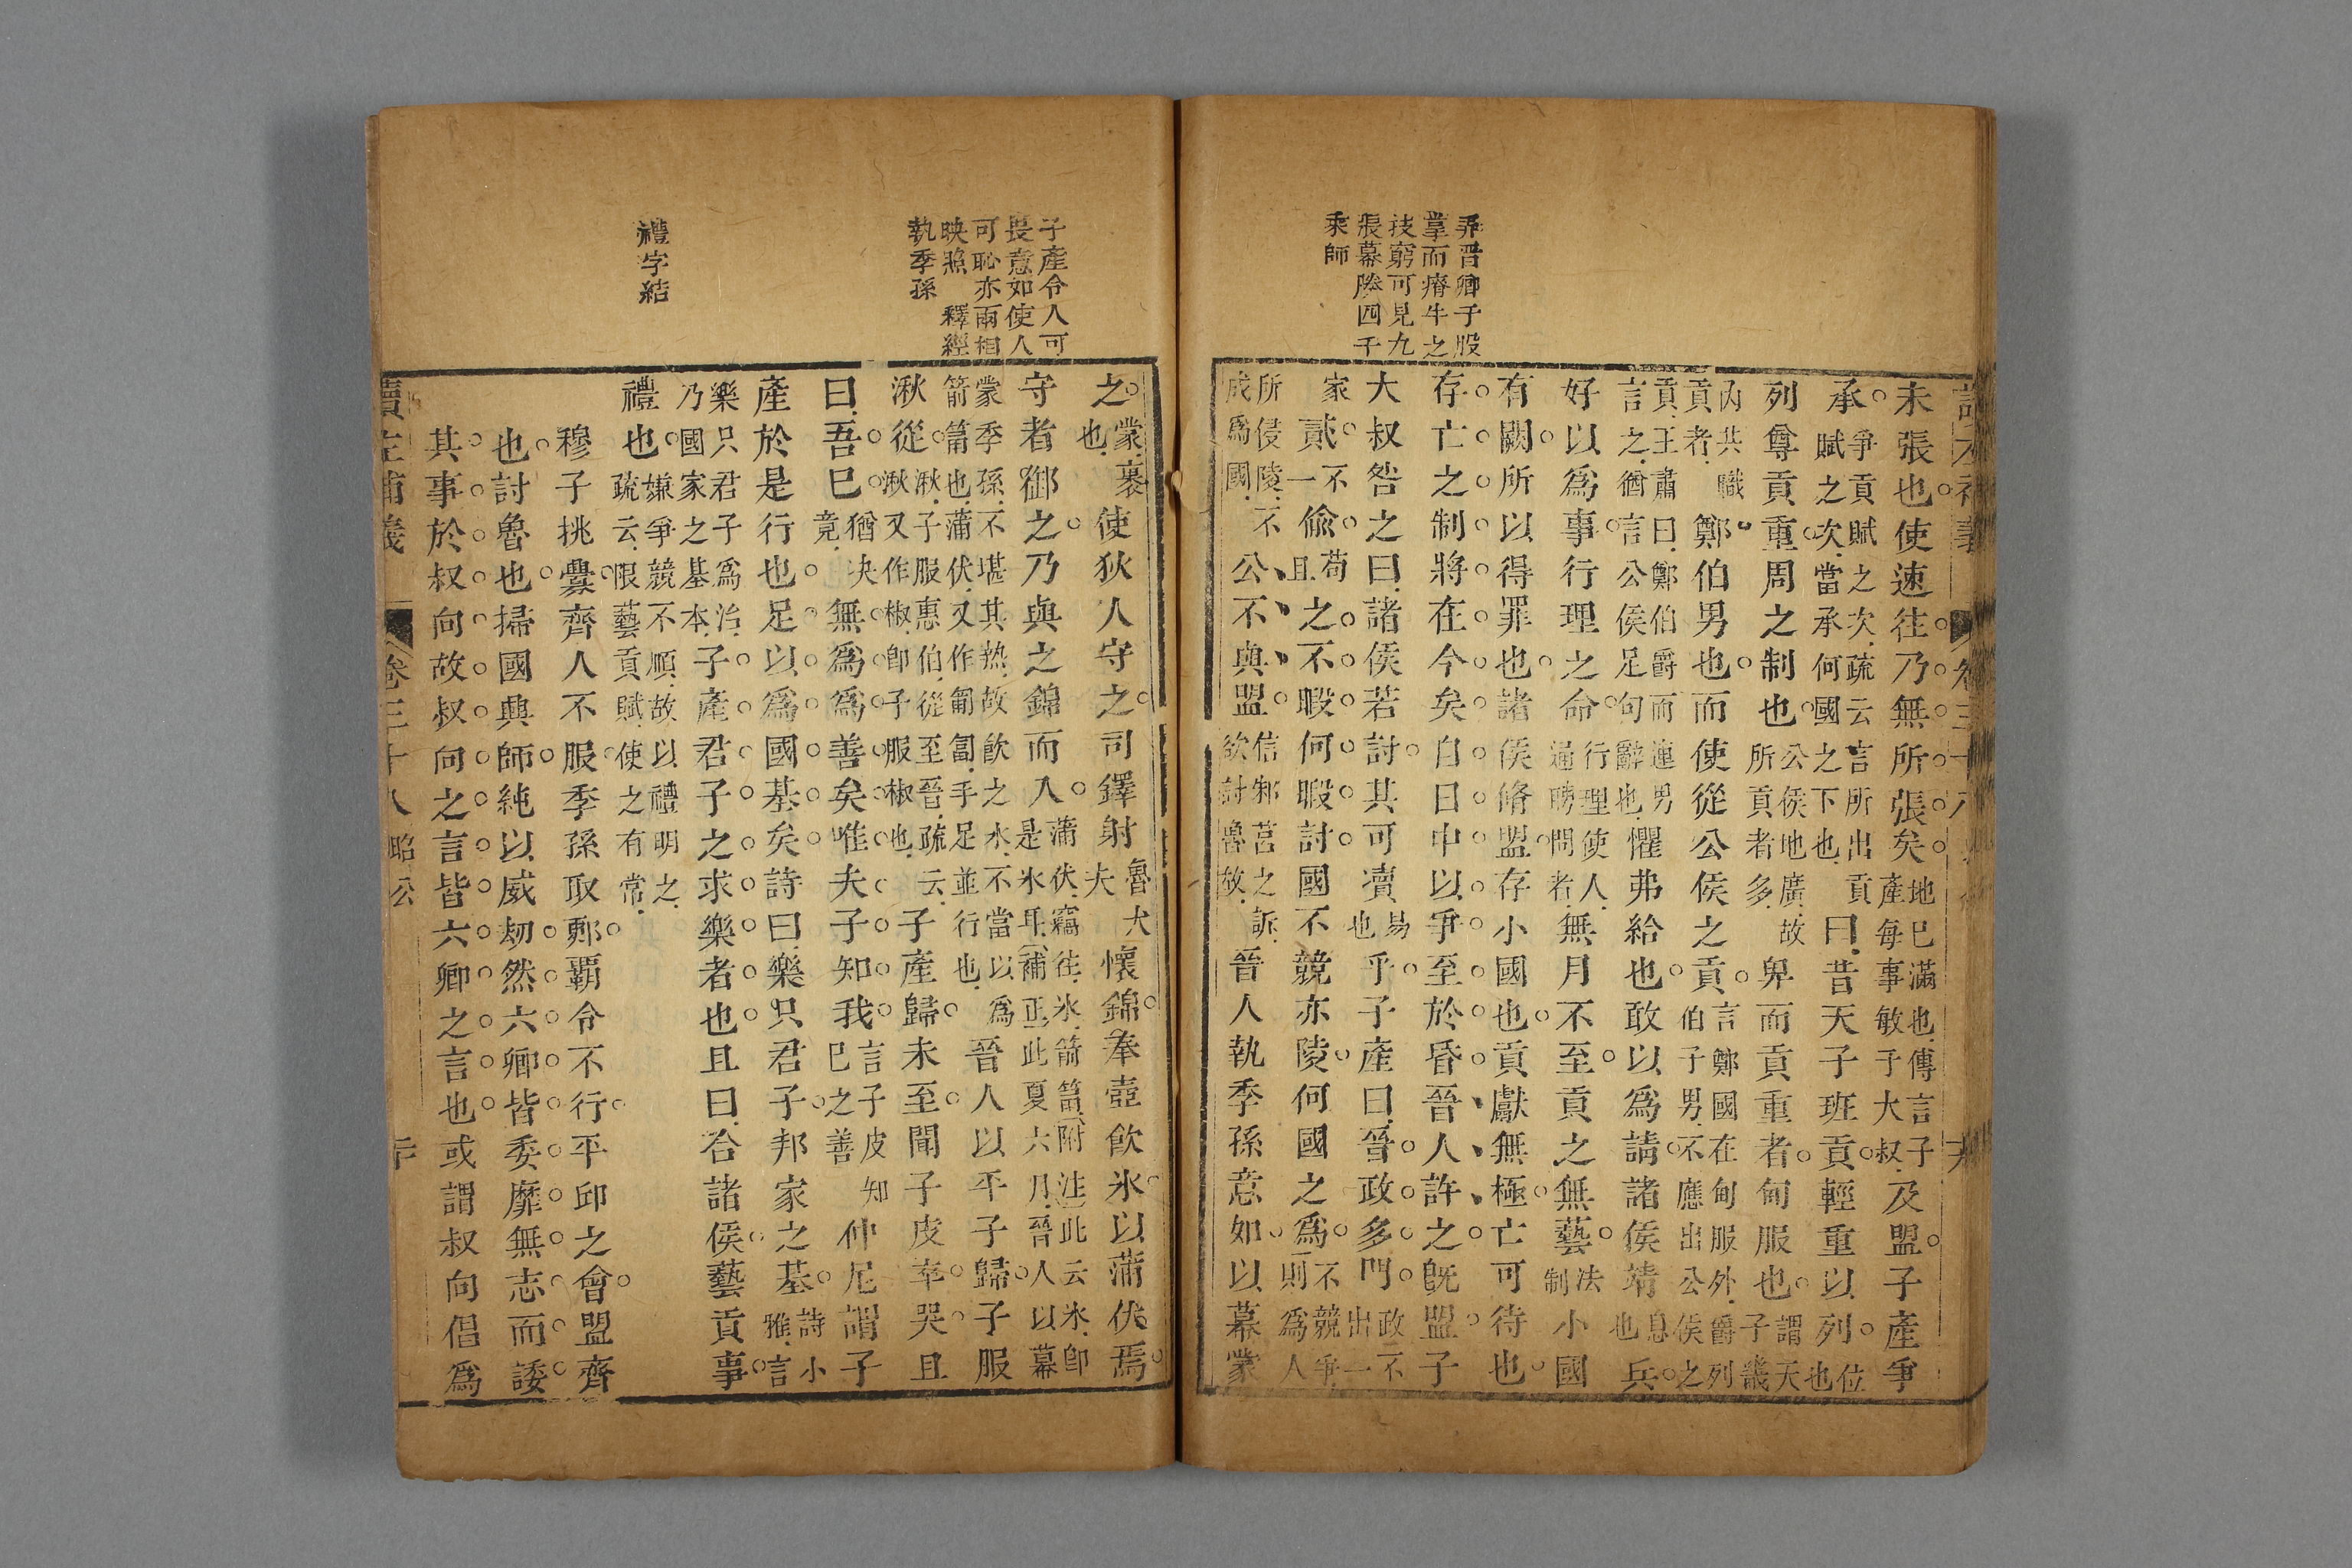 乖晉卿子股
掌而瘠牛之
技窮可見九
張幕勝四千
乘師
未張也使速往乃無所張矣地已滿也傳言子產每事敏于大叔及盟子產爭
承爭貢賦之次疏云言所出貢賦之次當承何國之下也曰昔天子班貢輕重以列位也
列尊貢重周之制也公侯地廣故所貢者多卑而貢重者甸服也謂天子畿
內共職貢者鄭伯男也而使從公侯之貢言鄭國在甸服外爵列伯子男不應出公侯之
貢王肅曰鄭伯爵而連男言之猶言公侯足句辭也懼弗給也敢以為請諸侯靖兵息也
好以為事行理之命行理使人通聘問者無月不至貢之無藝法制小國
有闕所以得罪也諸侯脩盟存小國也貢獻無極亡可待也
存亡之制將在今矣自日中以爭至於昏晉人許之旣盟子
大叔咎之曰諸侯若討其可瀆易也乎子產曰晉政多門政不出一
家貳不一偷苟且之不暇何暇討國不競亦陵何國之為不競爭則為人
所侵陵不成為國公不與盟信邾莒之訴欲討魯故晉人執季孫意如以幕蒙
子產令人可
畏意如使人
可恥亦兩相
映照 釋經
執季孫
禮字結
之蒙裹也使狄人守之司鐸射魯大夫懷錦奉壺飲冰以蒲伏焉
守者御之乃與之錦而入蒲伏竊往冰箭筩附注此云冰卽是氷耳補正此夏六月晉人以幕
蒙季孫不堪其熱故飲之水不當以為箭筩也蒲伏又作匍匐手足並行也晉人以平子歸子服
湫從湫子服惠伯從至晉疏云湫又作椒卽子服椒也子產歸未至聞子皮卒哭且
曰吾已猶決竟無為為善矣唯夫子知我言子皮知己之善仲尼謂子
產於是行也足以為國基矣詩曰樂只君子邦家之基詩小雅言
樂只君子為治乃國家之基本子產君子之求樂者也且曰合諸侯藝貢事
禮也嫌爭競不順故以禮明之疏云限藝貢賦使之有常
穆子挑釁齊人不服季孫取鄆覇令不行平邱之會盟齊
也討魯也掃國興師純以威刼然六卿皆委靡無志而諉
其事於叔向故叔向之言皆六卿之言也或謂叔向倡為
讀左補義 卷三十八 昭公 二十